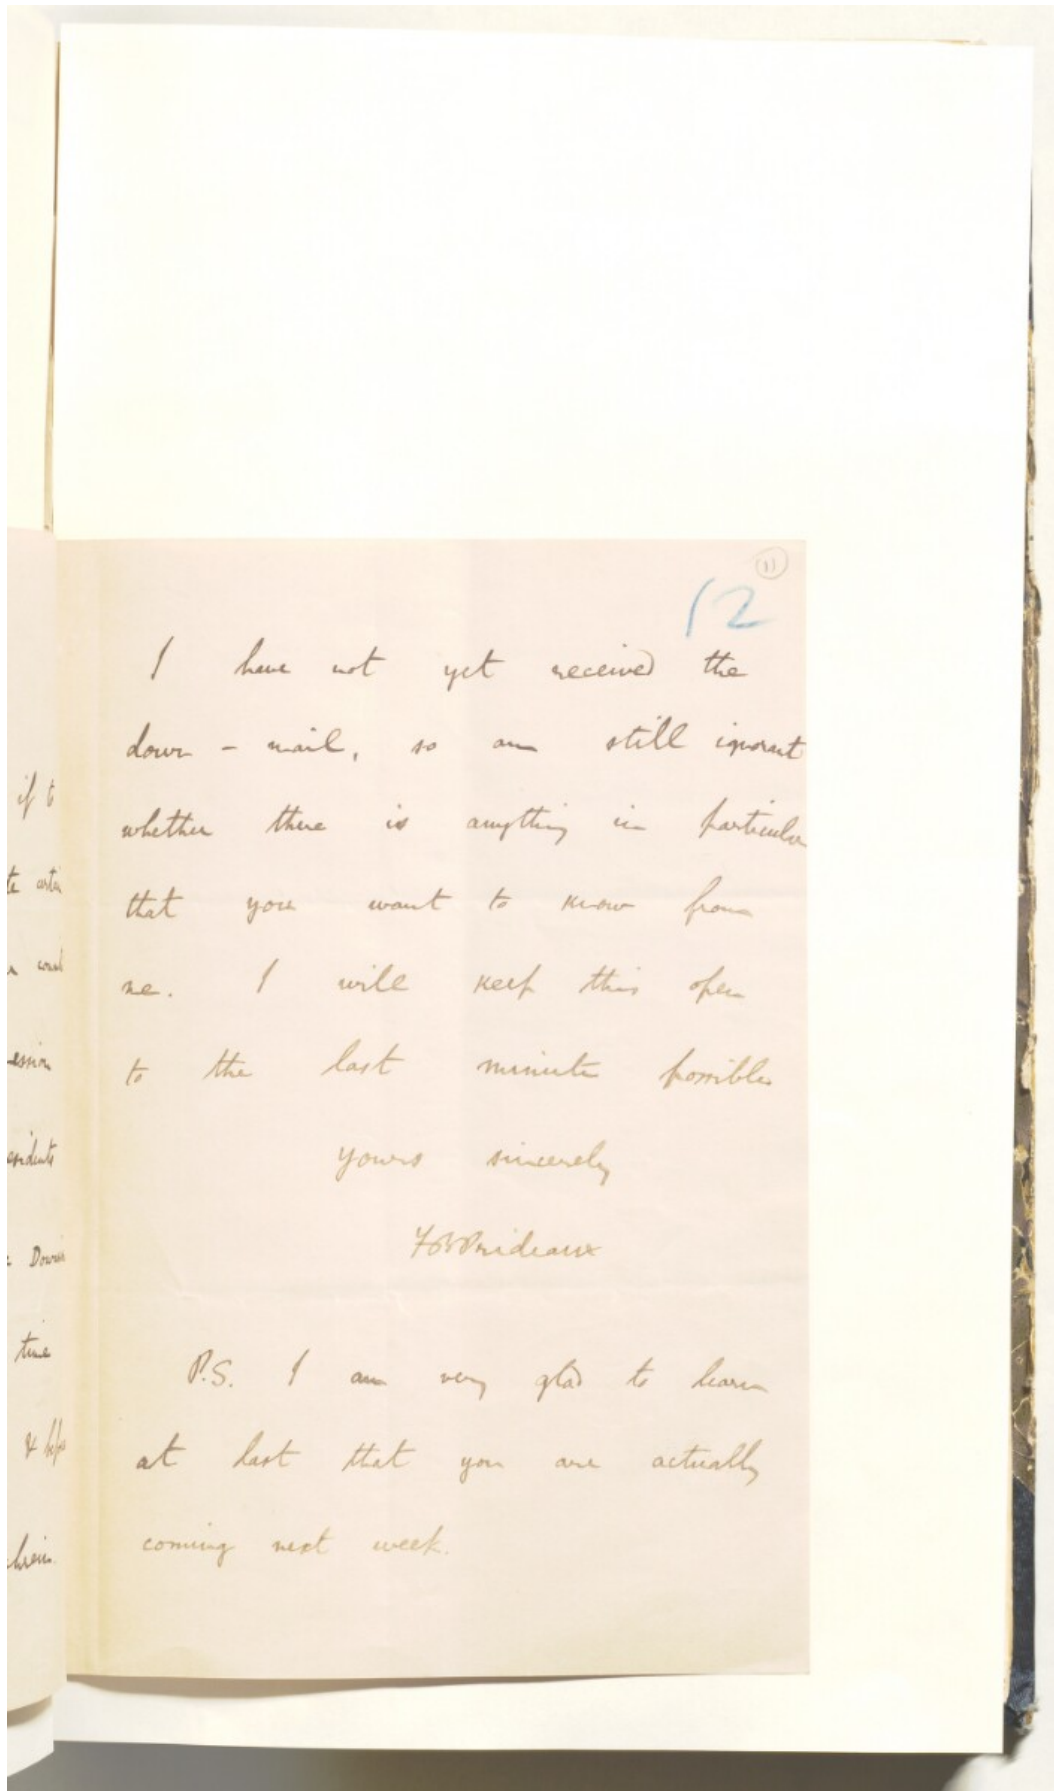 11
12
I have not yet received the
down - mail, so am still ignorant
whether there is anything in particular
that you want to know from
me. I will keep this open
to the last minute possible
Yours sincerely
F B Prideaux
P.S. I am very glad to learn
at last that you are actually
coming next week.
if to
time